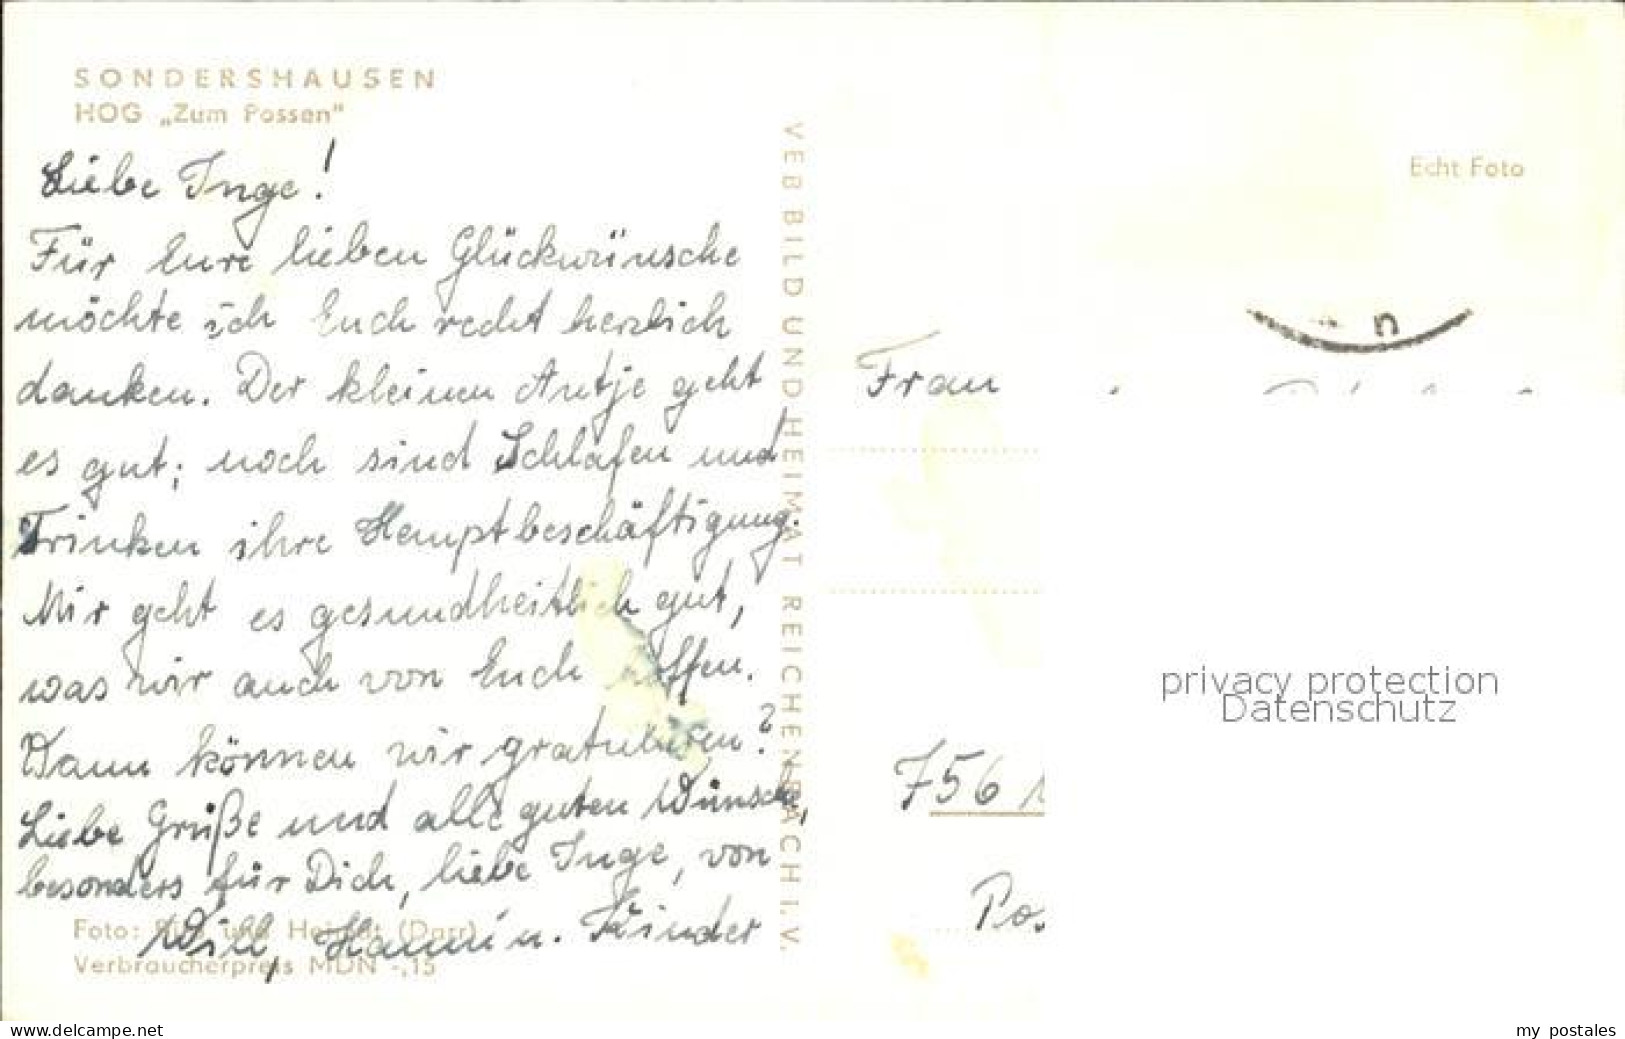 SONDERSHAUSEN
HOG „Zum Possen"
Liebe Inge!
Für Eure lieben Glückwünsche
möchte ich Euch recht herzlich
danken. Der kleinen Antje geht
es gut; noch sind Schlafen und
Trinken ihre Hauptbeschäftigung.
Mir geht es gesundheitlich gut,
was wir auch von Euch hoffen.
Wann können wir gratulieren?
Liebe Grüße und alle guten Wünsche,
besonders für Dich, liebe Inge, von
Willi, Hanni u. Kinder
Foto: Bild und Heimat (Darr)
Verbraucherpreis MDN -,15
VEB BILD UND HEIMAT REICHENBACH I. V.
Echt Foto
n
Frau
756
Po.
privacy protection
Datenschutz
www.delcampe.net
my postales